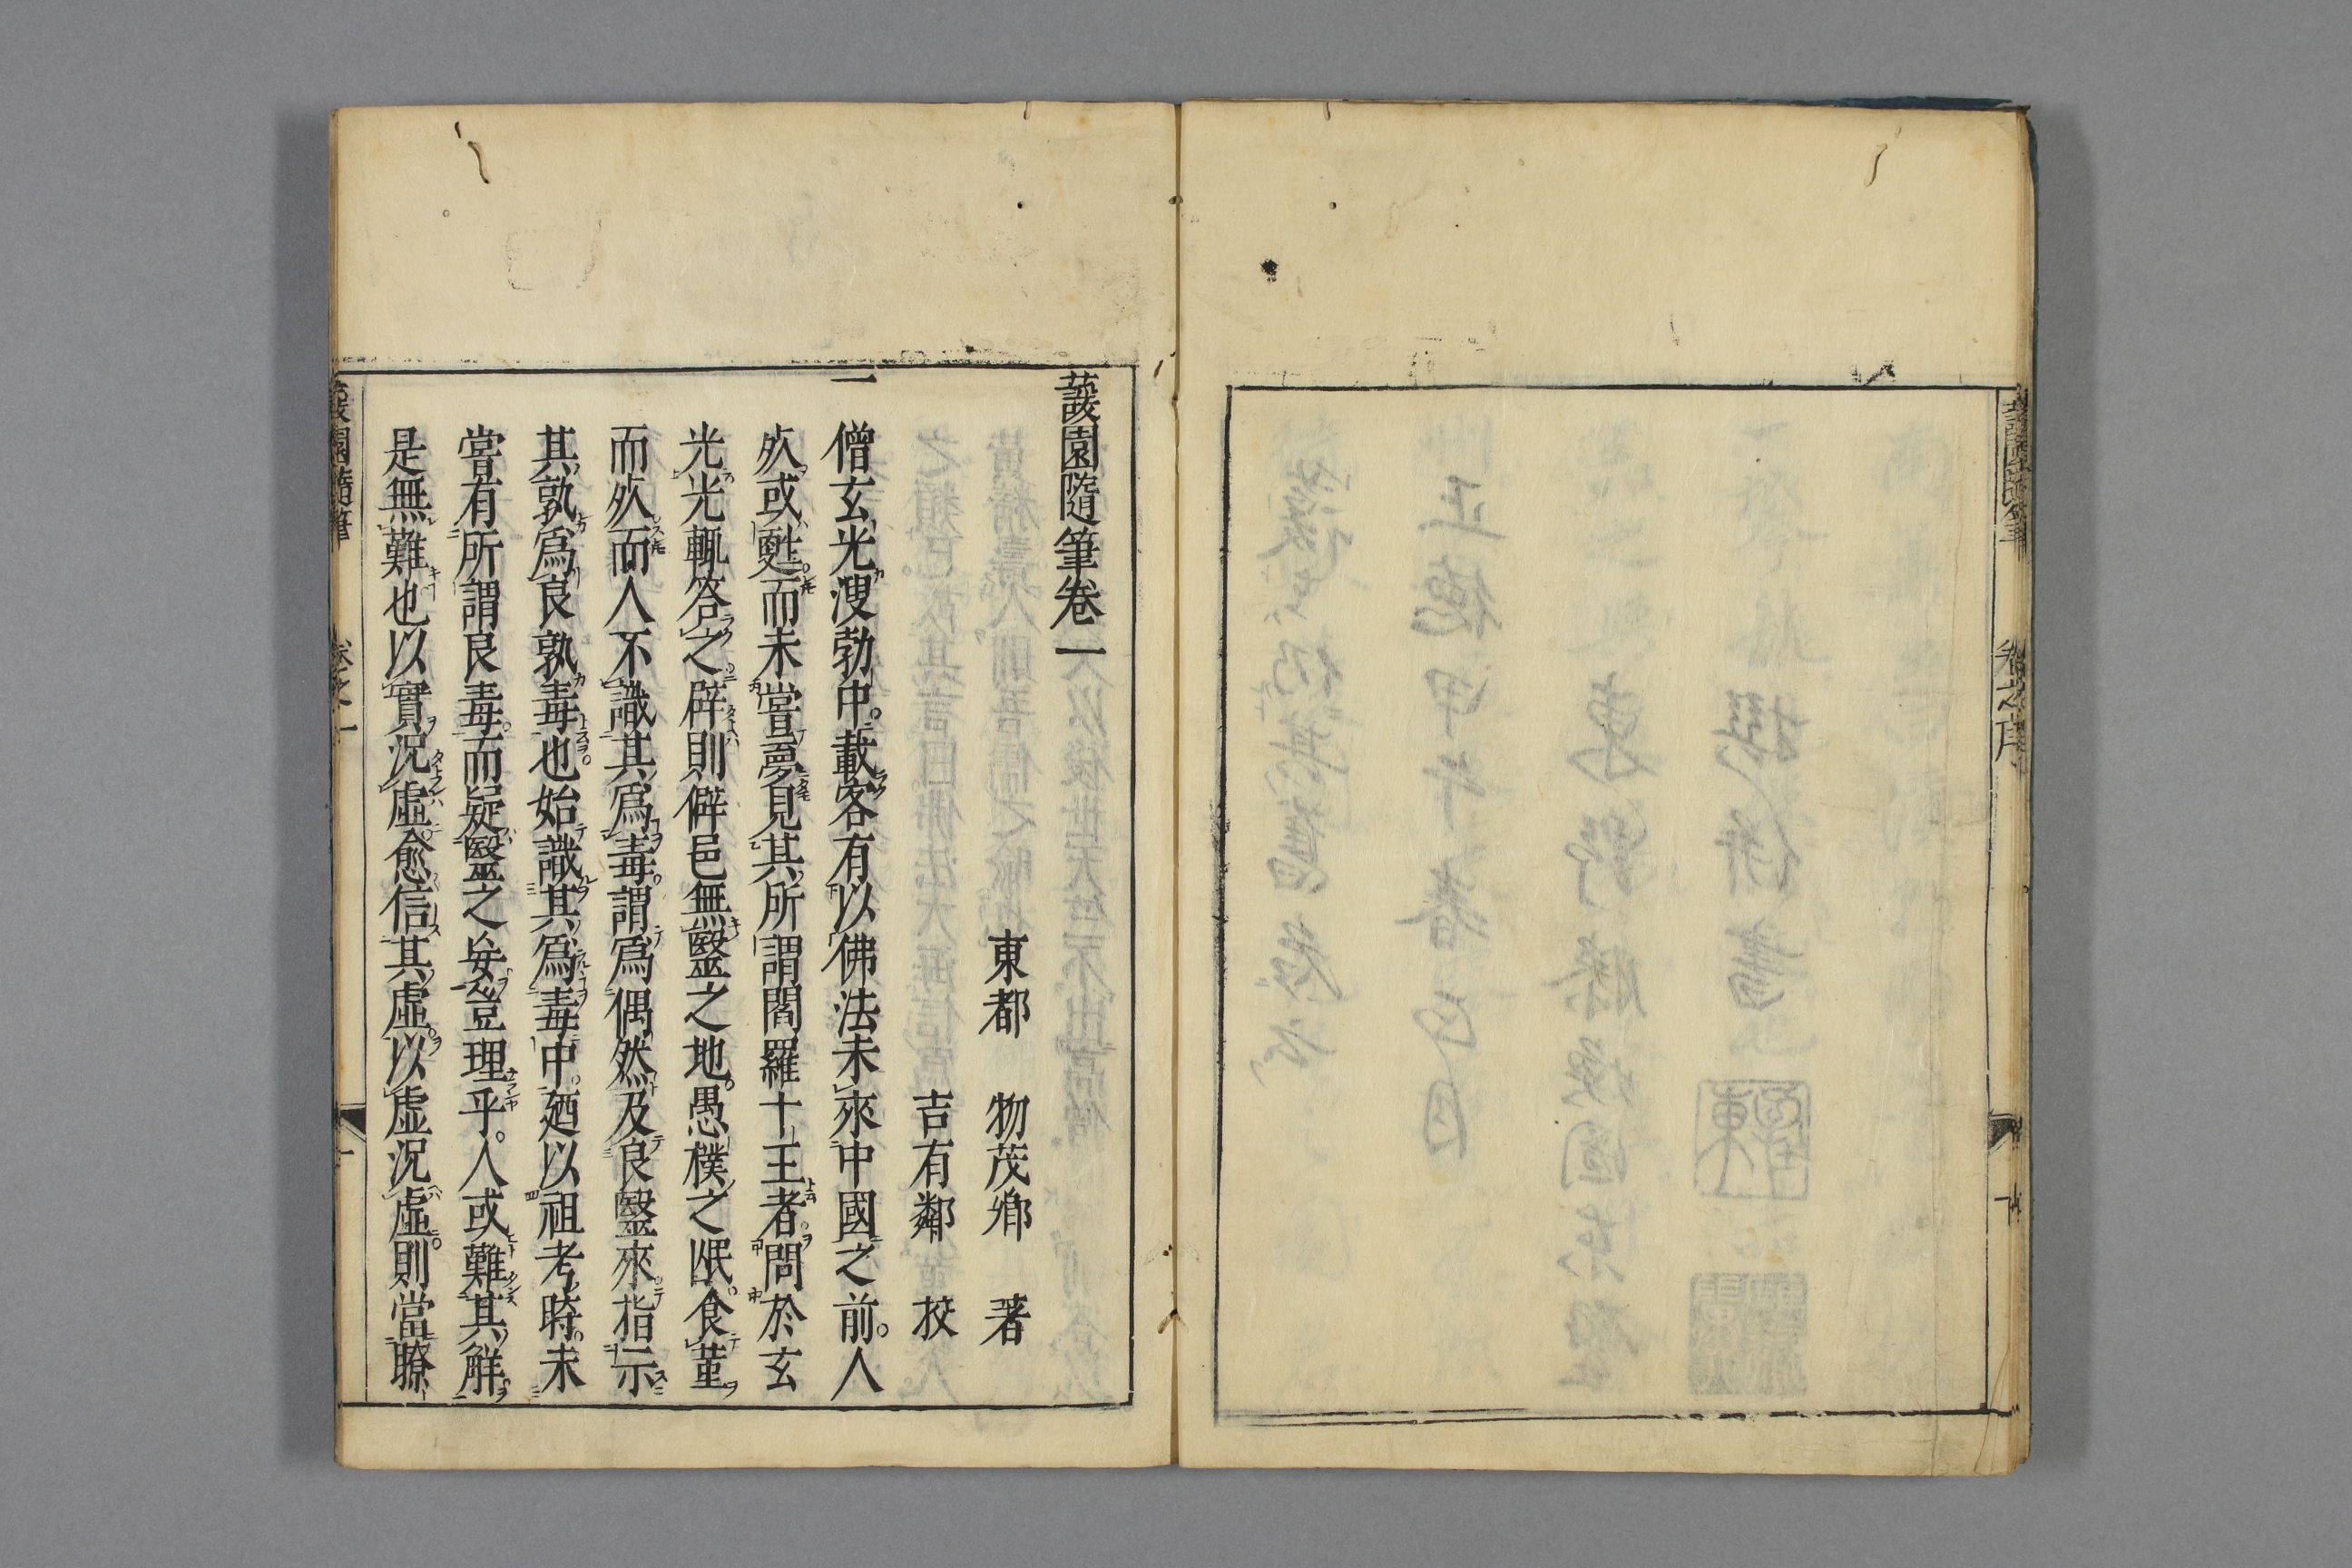 蘐園隨筆
卷之序
蘐園隨筆卷一
東都　物茂卿　著
吉有鄰　挍
一
僧玄光溲勃中。載客有以佛法未來中國之前。人
死或甦。而未嘗夢見其所謂閻羅十王者。問於玄
光。光輒答之。辟則僻邑無毉之地。愚樸之氓。食菫
而死。而人不識其爲毒。謂爲偶然。及良毉來。指示
其孰爲良孰毒也。始識其爲毒中。廼以祖考時。未
嘗有所謂良毒。而疑毉之妄。豈理乎。人或難其解。
是無難也。以實況虛。愈信其虛。以虛況虛。則當瞭
蘐園隨筆
卷之一
一